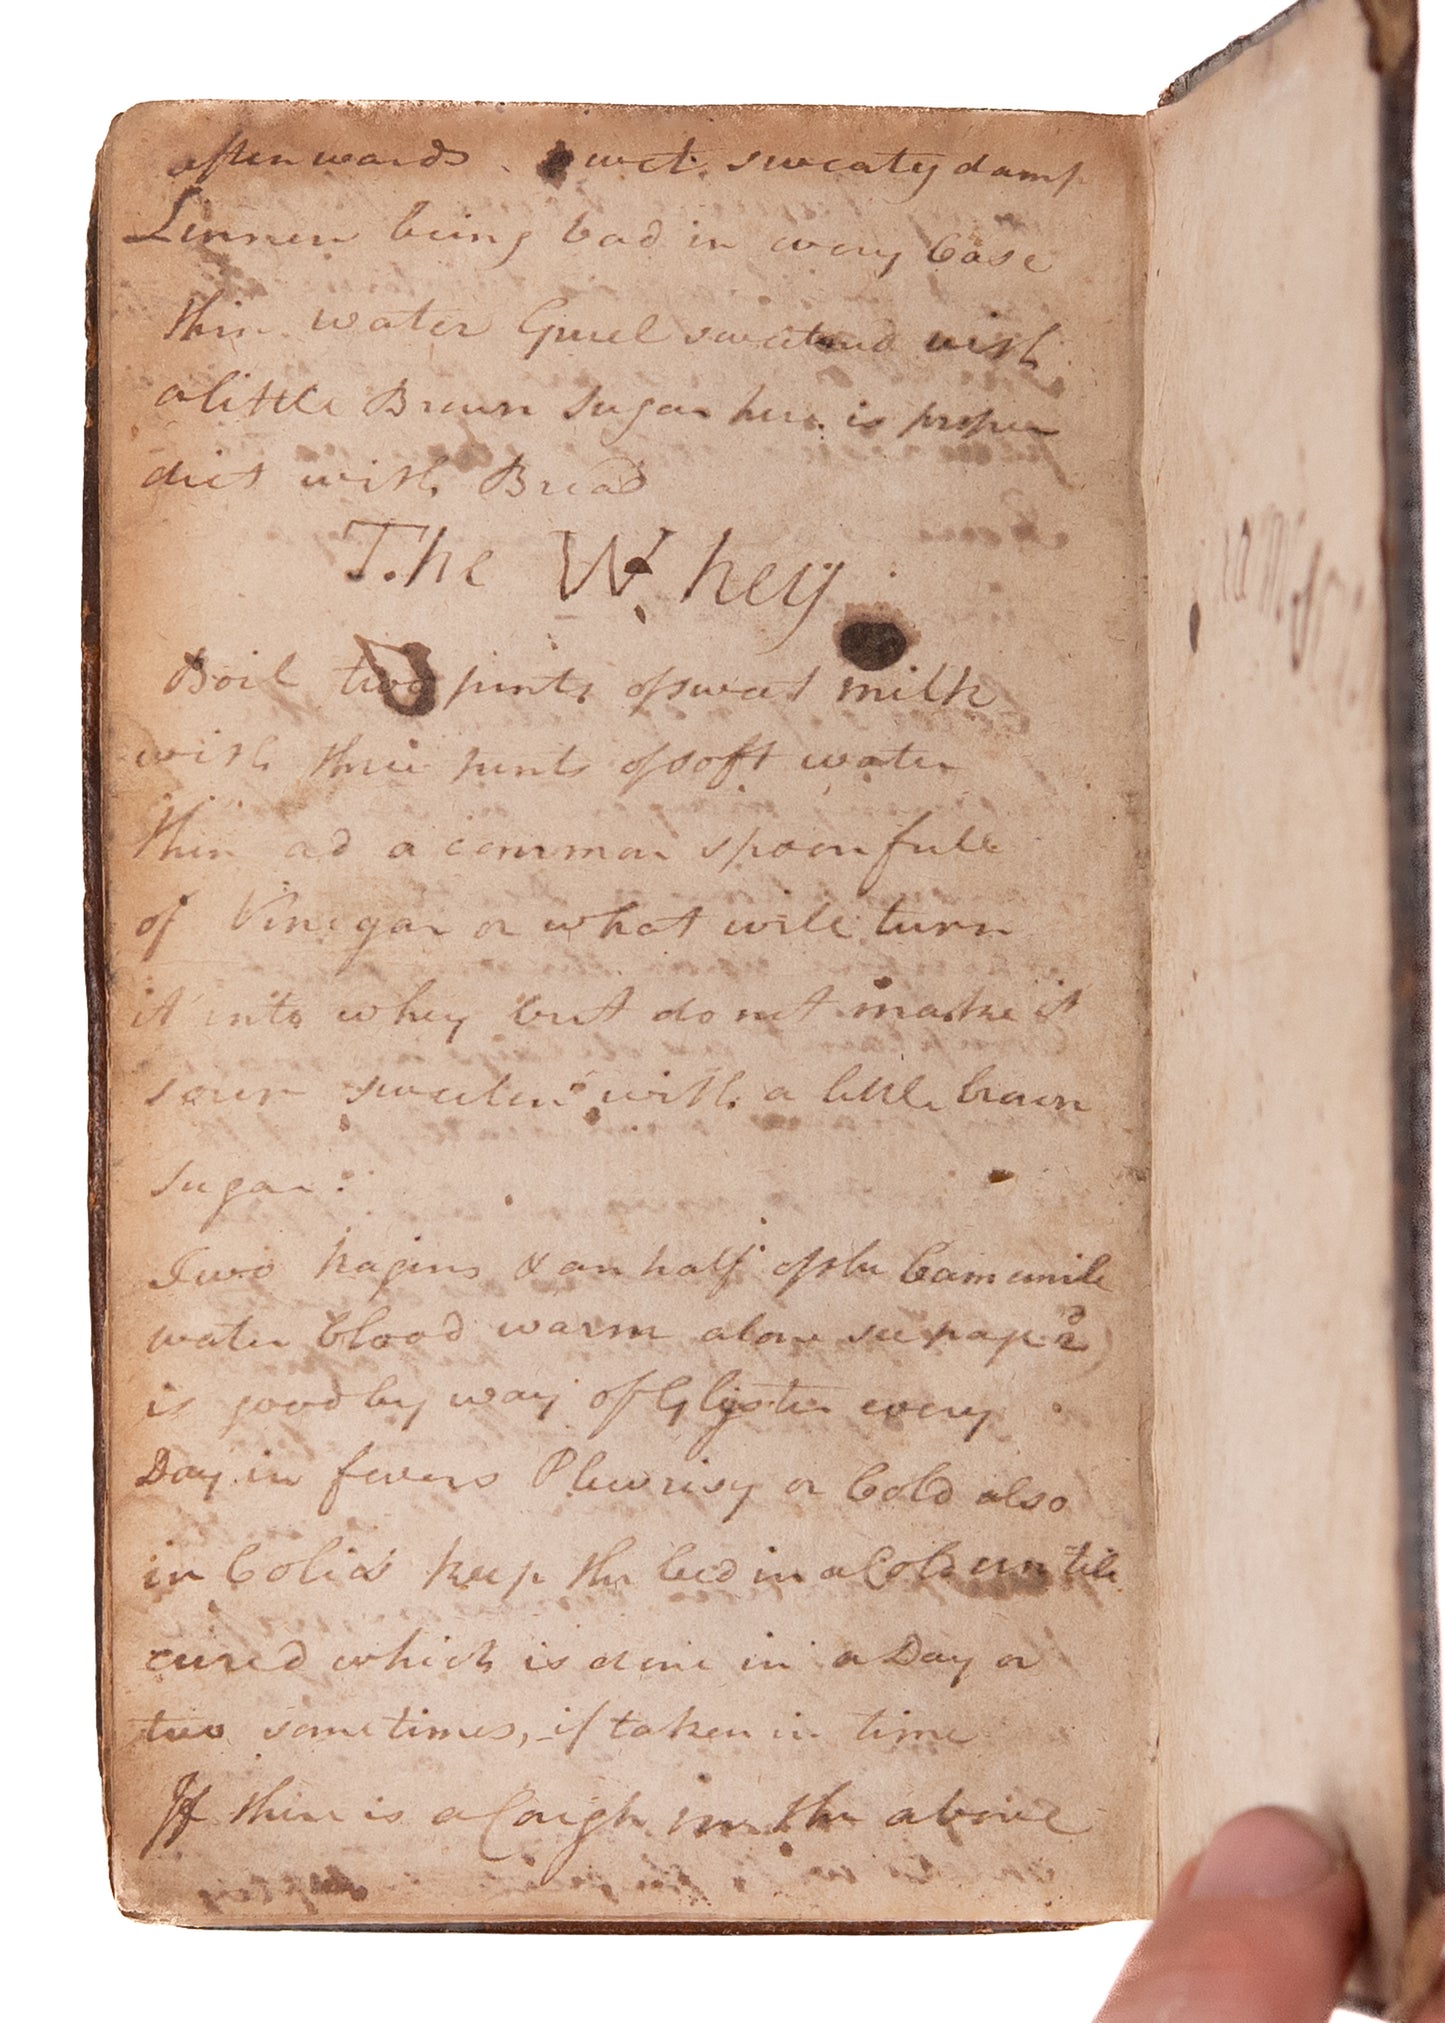 afterwards. wet sweaty damp
Linnen being bad in every Case
thin water Gruel sweetend with
a little Brown Sugar here is proper
diet with Bread
The Whey
Boil two pints of sweat milk
with three pints of soft water
then ad a common spoonfull
of Vinegar or what will turn
it into whey but do not make it
sour sweeten with a little brown
sugar.
Two nagins & an half of the Camimile
water blood warm alone see page 2
is good by way of Glyster every
Day in fevers Plewrisy or Cold also
in Colics keep the bed in a Cold untill
cured which is done in a Day or
two sometimes, if taken in time
If there is a Caugh in the above